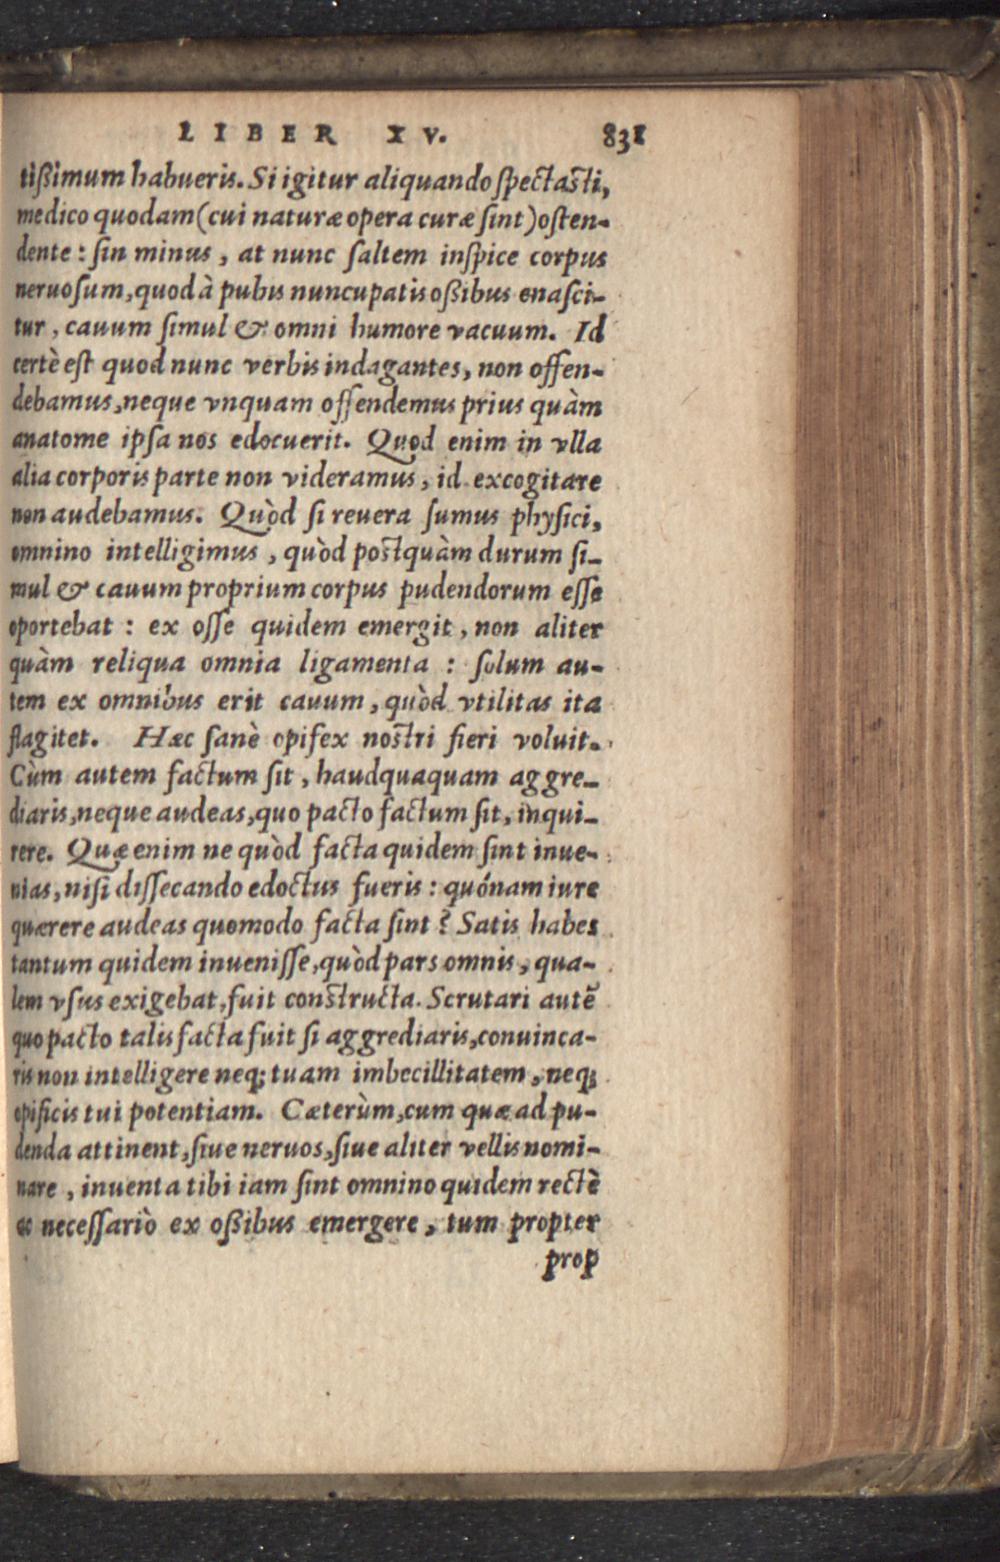 LIBER XV. 831
tißimum habueris. Si igitur aliquando ſpectaſti,
medico quodam (cui naturæ opera curæ ſint) oſten-
dente : ſin minus, at nunc ſaltem inſpice corpus
neruoſum, quod à pubis nuncupatis oßibus enaſci-
tur, cauum ſimul & omni humore vacuum. Id
certè eſt quod nunc verbis indagantes, non offen-
debamus, neque vnquam offendemus prius quàm
anatome ipſa nos edocuerit. Quod enim in vlla
alia corporis parte non videramus, id excogitare
non audebamus. Quòd ſi reuera ſumus phyſici,
omnino intelligimus, quòd poſtquàm durum ſi-
mul & cauum proprium corpus pudendorum eſſe
oportebat : ex oſſe quidem emergit, non aliter
quàm reliqua omnia ligamenta : ſolum au-
tem ex omnibus erit cauum, quòd vtilitas ita
flagitet. Hæc ſanè opifex noſtri fieri voluit.
Cùm autem factum ſit, haudquaquam aggre-
diaris, neque audeas, quo pacto factum ſit, inqui-
rere. Quæ enim ne quòd facta quidem ſint inue-
nias, niſi diſſecando edoctus fueris : quónam iure
quærere audeas quomodo facta ſint ? Satis habes
tantum quidem inueniſſe, quòd pars omnis, qua-
lem vſus exigebat, fuit conſtructa. Scrutari autē
quo pacto talis facta fuit ſi aggrediaris, conuinca-
ris non intelligere neq; tuam imbecillitatem, neq;
opificis tui potentiam. Cæterùm, cum quæ ad pu-
denda attinent, ſiue neruos, ſiue aliter vellis nomi-
nare, inuenta tibi iam ſint omnino quidem rectè
ac neceſſariò ex oßibus emergere, tum propter
prop